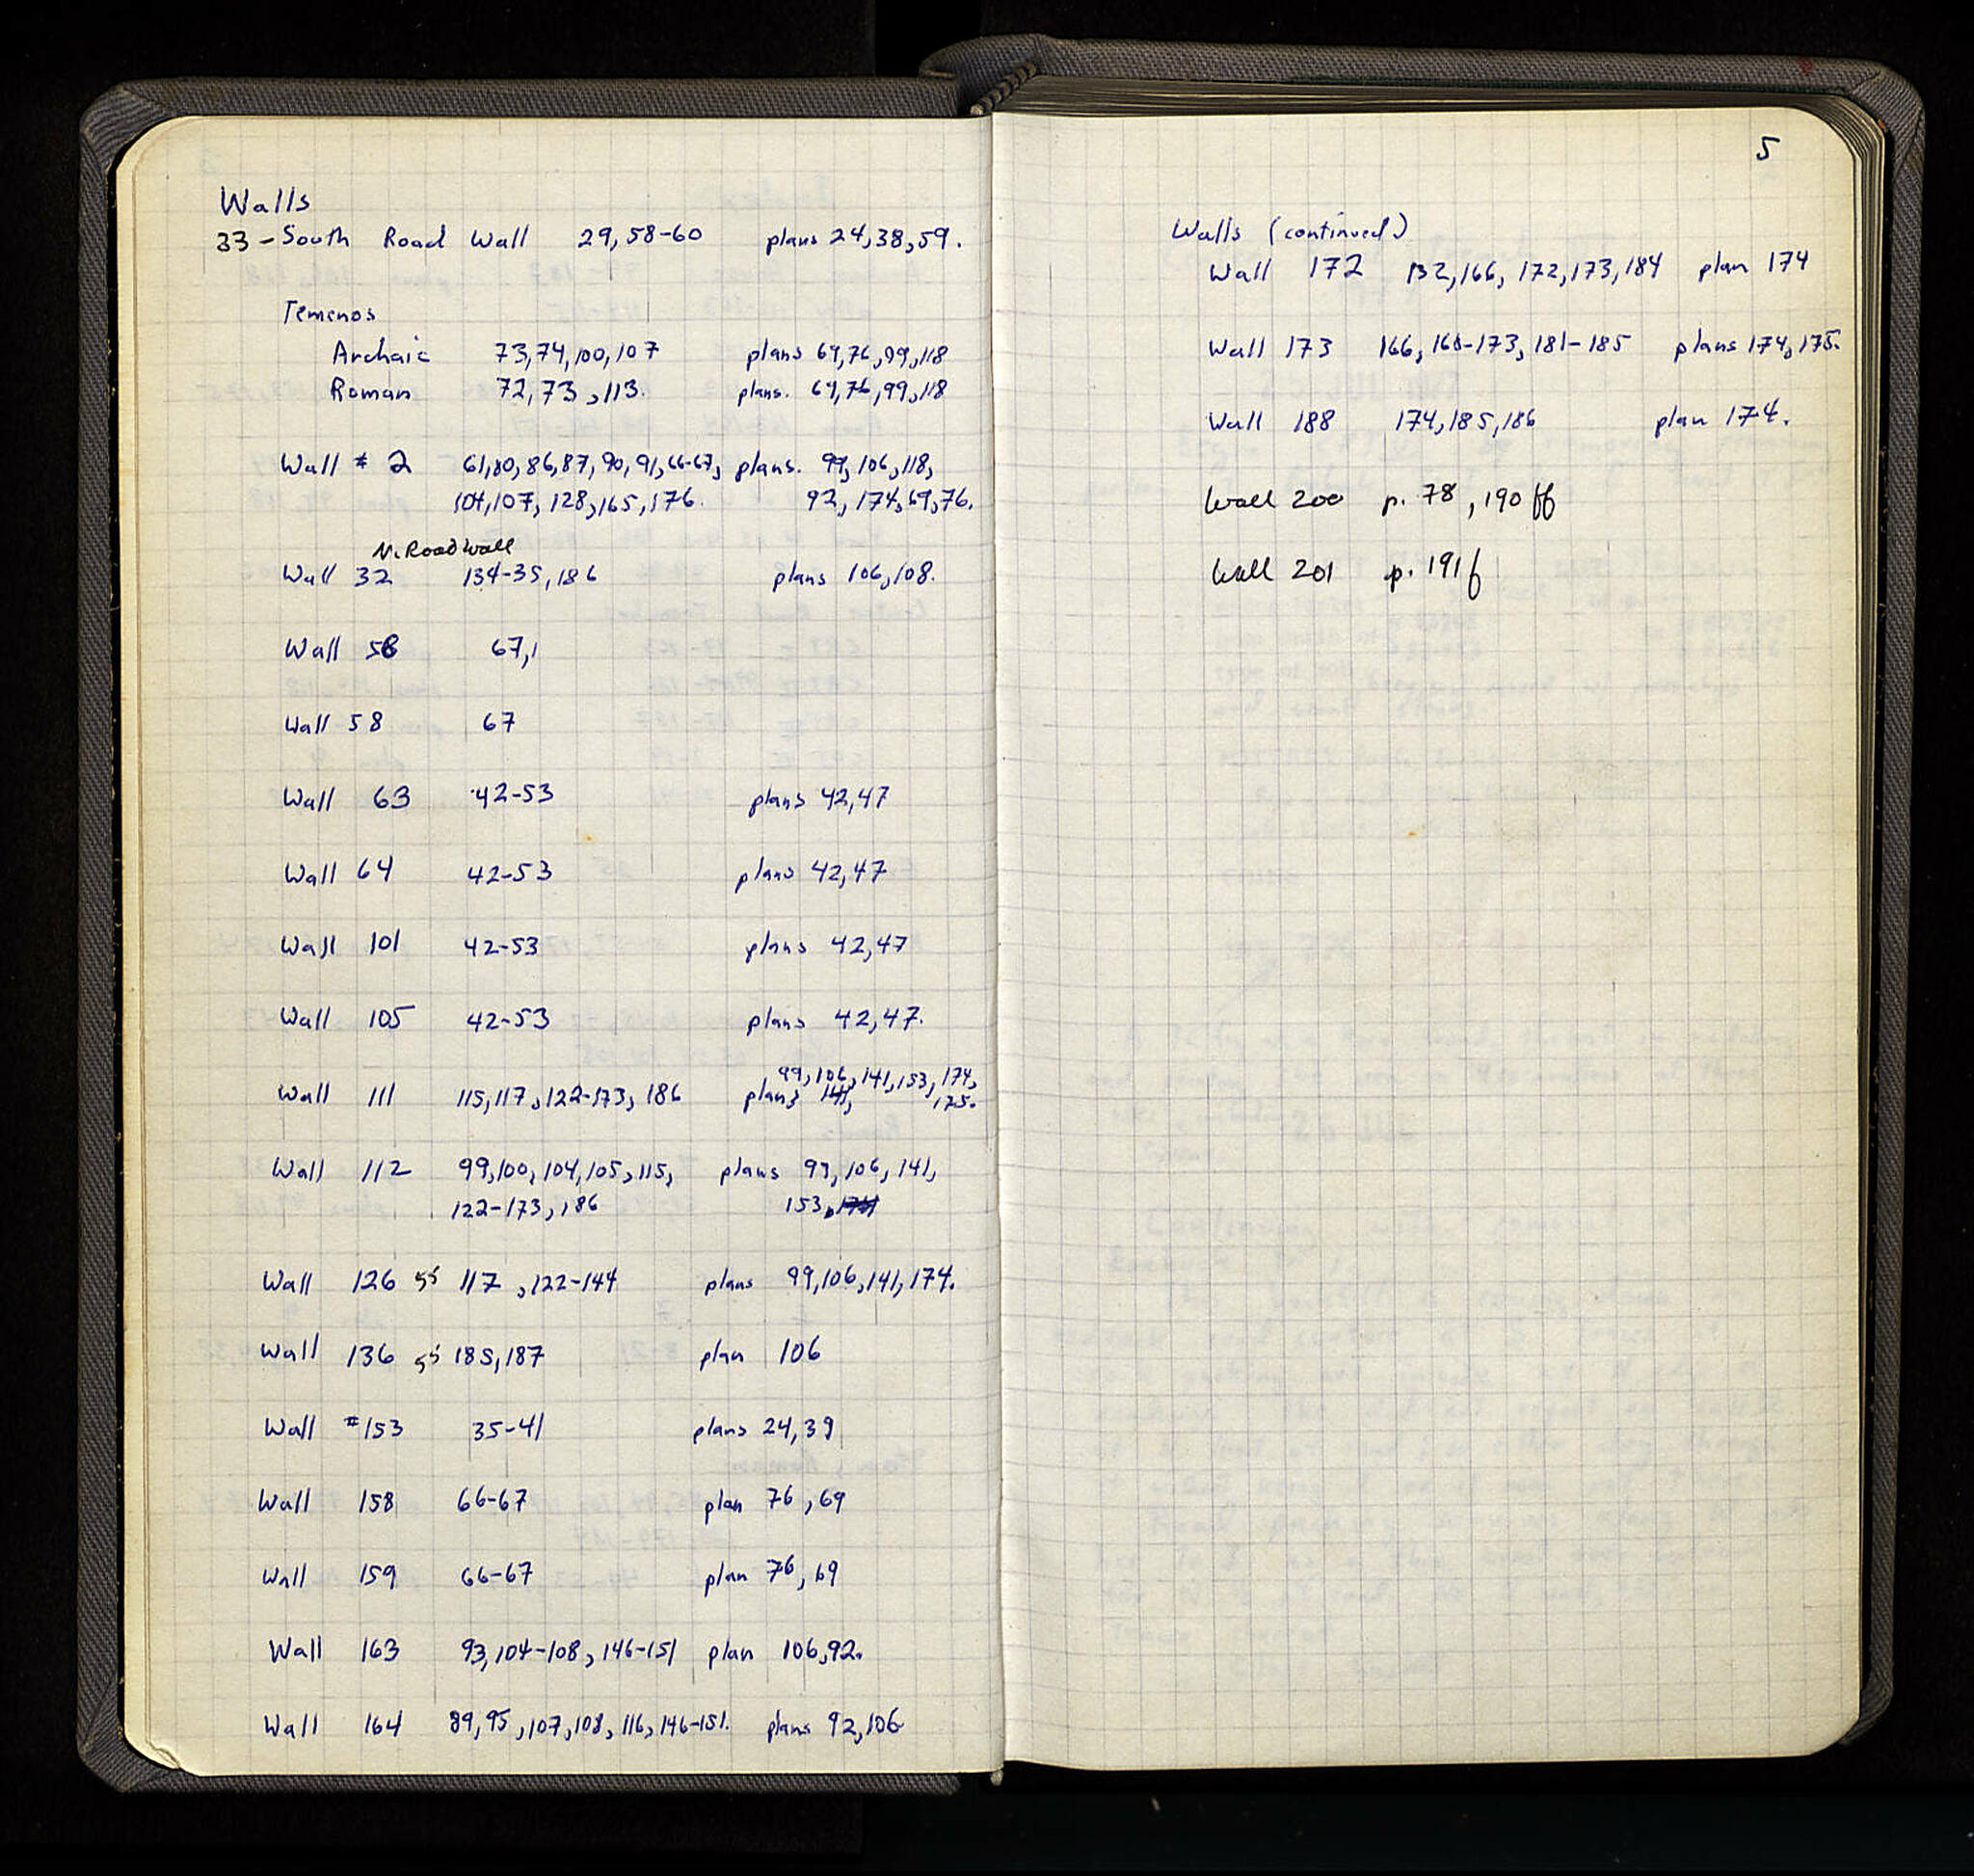 Walls
33 - South Road Wall 29, 58-60 plans 24, 38, 59.
Temenos
Archaic 73, 74, 100, 107 plans 69, 76, 99, 118
Roman 72, 73, 113. plans. 69, 76, 99, 118
Wall # 2 61, 80, 86, 87, 90, 91, 66-67, plans. 99, 106, 118,
104, 107, 128, 165, 176. 92, 174, 69, 76.
N. Road Wall
Wall 32 134-35, 186 plans 106, 108.
Wall 58 67,1
Wall 58 67
Wall 63 42-53 plans 42, 47
Wall 64 42-53 plans 42, 47
Wall 101 42-53 plans 42, 47
Wall 105 42-53 plans 42, 47.
99, 106, 141, 153, 174,
Wall 111 115, 117, 122-173, 186 plans 141, 175.
Wall 112 99, 100, 104, 105, 115, plans 99, 106, 141,
122-173, 186 153, 174
Wall 126 55 117, 122-144 plans 99, 106, 141, 174.
Wall 136 55 185, 187 plan 106
Wall #153 35-41 plans 24, 39
Wall 158 66-67 plan 76, 69
Wall 159 66-67 plan 76, 69
Wall 163 93, 104-108, 146-151 plan 106, 92.
Wall 164 89, 95, 107, 108, 116, 146-151. plans 92, 106
5
Walls (continued)
Wall 172 132, 166, 172, 173, 184 plan 174
Wall 173 166, 168-173, 181-185 plans 174, 175.
Wall 188 174, 185, 186 plan 174.
Wall 200 p. 78, 190 ff
Wall 201 p. 191 f